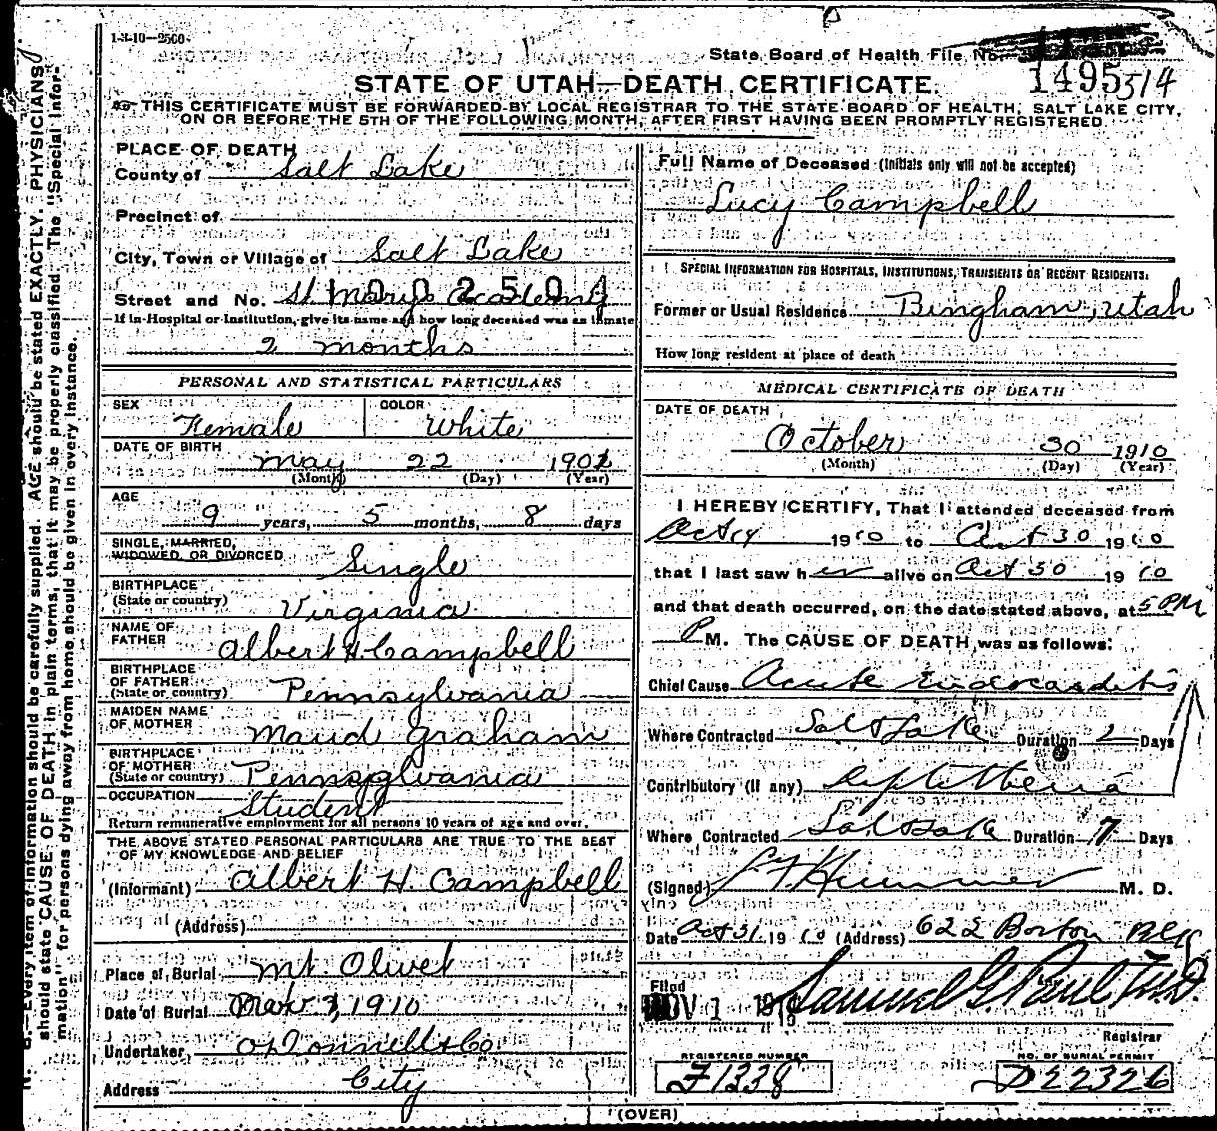 1-3-10—2500
State Board of Health File No.
1495 514
STATE OF UTAH—DEATH CERTIFICATE.
THIS CERTIFICATE MUST BE FORWARDED BY LOCAL REGISTRAR TO THE STATE BOARD OF HEALTH, SALT LAKE CITY,
ON OR BEFORE THE 5TH OF THE FOLLOWING MONTH, AFTER FIRST HAVING BEEN PROMPTLY REGISTERED.
PLACE OF DEATH
County of Salt Lake
Precinct of
City, Town or Village of Salt Lake
Street and No. St Mary's Academy
If in Hospital or Institution, give its name and how long deceased was an inmate
2 months
PERSONAL AND STATISTICAL PARTICULARS
SEX Female COLOR White
DATE OF BIRTH May 22 1901
(Month) (Day) (Year)
AGE 9 years, 5 months, 8 days
SINGLE, MARRIED, WIDOWED, OR DIVORCED Single
BIRTHPLACE (State or country) Virginia
NAME OF FATHER Albert H. Campbell
BIRTHPLACE OF FATHER (State or country) Pennsylvania
MAIDEN NAME OF MOTHER Maud Graham
BIRTHPLACE OF MOTHER (State or country) Pennsylvania
OCCUPATION Student
Return remunerative employment for all persons 10 years of age and over.
THE ABOVE STATED PERSONAL PARTICULARS ARE TRUE TO THE BEST
OF MY KNOWLEDGE AND BELIEF
(Informant) Albert H. Campbell
(Address)
Place of Burial Mt. Olivet
Date of Burial Nov. 1, 1910
Undertaker O'Donnell & Co.
Address City
Full Name of Deceased (Initials only will not be accepted)
Lucy Campbell
SPECIAL INFORMATION FOR HOSPITALS, INSTITUTIONS, TRANSIENTS OR RECENT RESIDENTS:
Former or Usual Residence Bingham, Utah
How long resident at place of death
MEDICAL CERTIFICATE OF DEATH
DATE OF DEATH
October 30 1910
(Month) (Day) (Year)
I HEREBY CERTIFY, That I attended deceased from
Oct 14 1910 to Oct 30 1910
that I last saw her alive on Oct 30 1910
and that death occurred, on the date stated above, at 5 PM
P M. The CAUSE OF DEATH was as follows:
Chief Cause Acute Endocarditis
Where Contracted Salt Lake Duration 2 Days
Contributory (if any) Diphtheria
Where Contracted Salt Lake Duration 7 Days
(Signed) M. D.
Date Oct 31 1910 (Address) 622 Boston Blk
Filed
NOV 1 1910 Samuel G. Paul M.D.
Registrar
REGISTERED NUMBER NO. OF BURIAL PERMIT
F1338 D22326
(OVER)
N. B.—Every item of information should be carefully supplied. AGE should be stated EXACTLY. PHYSICIANS
should state CAUSE OF DEATH in plain terms, that it may be properly classified. The "Special Infor-
mation" for persons dying away from home should be given in every instance.